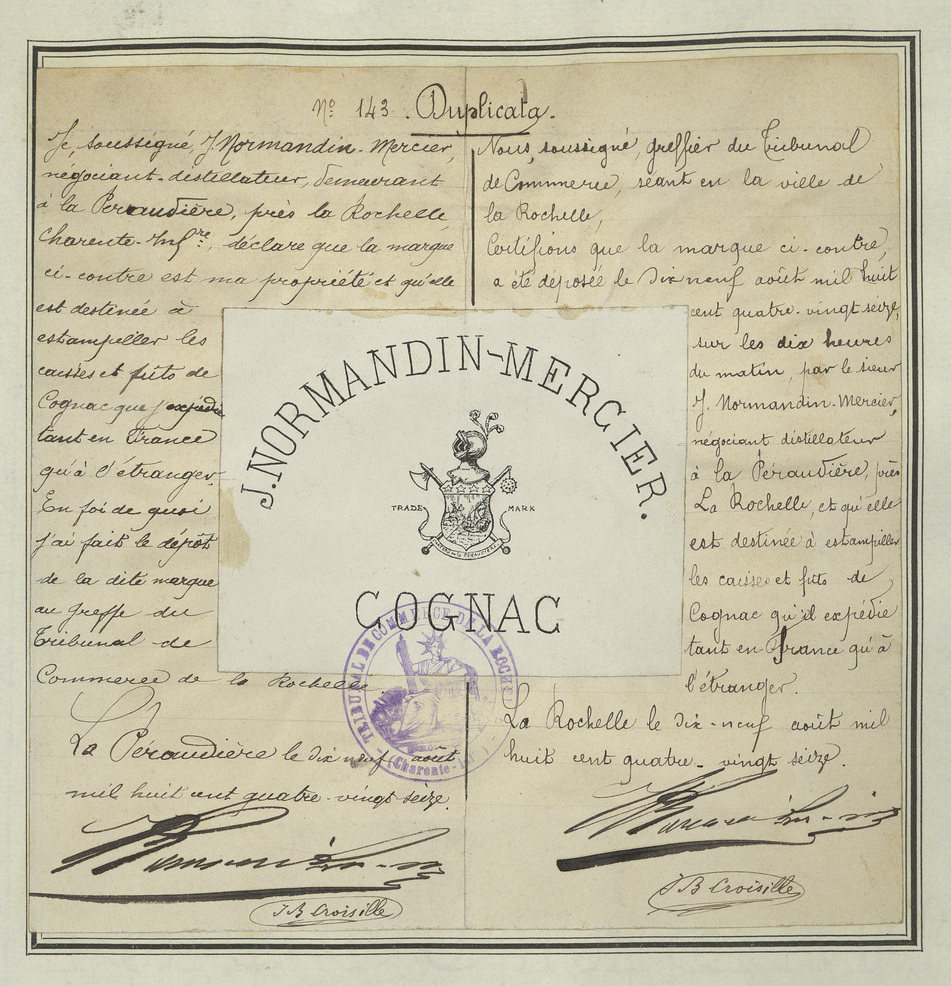 No 143. Duplicata.
Je, soussigné, J. Normandin-Mercier,
négociant-distillateur, demeurant
à la Peraudière, près la Rochelle
Charente-Infre, déclare que la marque
ci-contre est ma propriété et qu'elle
est destinée à
estampiller les
caisses et fûts de
Cognac que j'expédie
tant en France
qu'à l'étranger.
En foi de quoi
j'ai fait le dépôt
de la dite marque
au greffe du
Tribunal de
Commerce de la Rochelle
La Peraudière le dix neuf août
mil huit cent quatre-vingt seize.
J B Croisille
J. NORMANDIN-MERCIER.
TRADE MARK
COGNAC
TRIBUNAL DE COMMERCE DE LA ROCHELLE
(Charente-Inf)
Nous, soussigné, greffier du Tribunal
de Commerce, séant en la ville de
la Rochelle,
Certifions que la marque ci-contre,
a été déposée le dix neuf août mil huit
cent quatre-vingt seize,
sur les dix heures
du matin, par le sieur
J. Normandin-Mercier,
négociant distillateur
à la Péraudière, près
La Rochelle, et qu'elle
est destinée à estampiller
les caisses et fûts de
Cognac qu'il expédie
tant en France qu'à
l'étranger.
La Rochelle le dix-neuf août mil
huit cent quatre-vingt seize.
J B Croisille